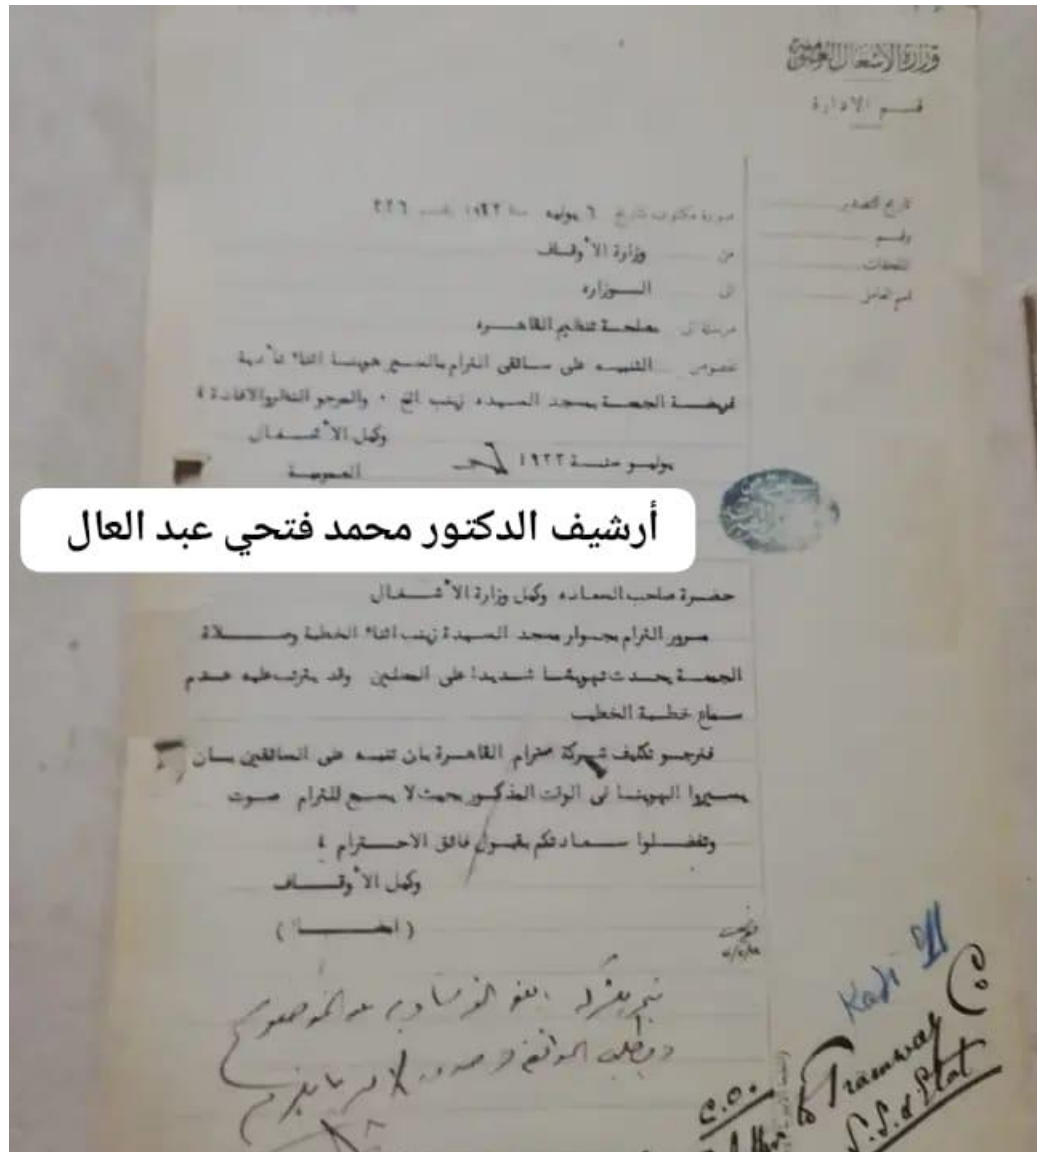 وزارة الأشغال العمومية
قسم الادارة
تاريخ التصدير
رقم
الملحقات
اسم العامل
صورة مكتوب تاريخ ٦ يوليه سنة ١٩٢٢
من وزارة الأوقاف
الى الوزاره
مرسلة الى مصلحة تنظيم القاهره
بخصوص التنبيه على سائقى الترام بالسير هوينا اثناء تأدية
فريضة الجمعة بمسجد السيده زينب الخ ٠ والمرجو النظر والافادة ؛
وكيل الأشغال
العمومية
يوليو سنة ١٩٢٢
أرشيف الدكتور محمد فتحي عبد العال
حضرة صاحب السعاده وكيل وزارة الأشغال
مرور الترام بجوار مسجد السيدة زينب اثناء الخطبة وصلاة
الجمعة يحدث تهويشا شديدا على المصلين وقد يترتب عليه عدم
سماع خطبة الخطيب
فنرجو تكليف شركة ترام القاهرة بان تنبه على السائقين بان
يسيروا الهوينا فى الوقت المذكور بحيث لا يسمع للترام صوت
وتفضلوا سعادتكم بقبول فائق الاحترام ؛
وكيل الأوقاف
( امضا )
Kadi Eff
C.O.
Tramway Co